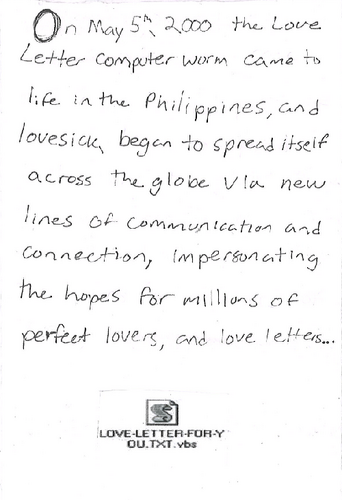 On May 5th, 2000 the Love
Letter computer worm came to
life in the Philippines, and
lovesick, began to spread itself
across the globe via new
lines of communication and
connection, impersonating
the hopes for millions of
perfect lovers, and love letters...
LOVE-LETTER-FOR-Y
OU.TXT.vbs